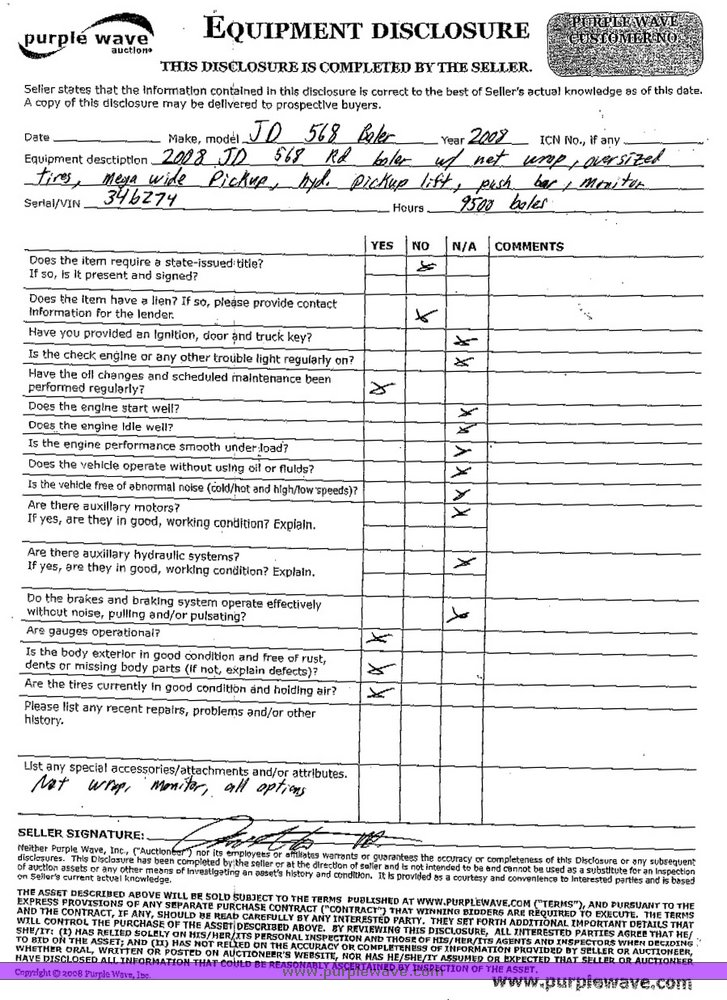 purple wave
auction
EQUIPMENT DISCLOSURE
PURPLE WAVE
CUSTOMER NO.
THIS DISCLOSURE IS COMPLETED BY THE SELLER.
Seller states that the information contained in this disclosure is correct to the best of Seller's actual knowledge as of this date.
A copy of this disclosure may be delivered to prospective buyers.
Date Make, model JD 568 Baler Year 2008 ICN No., if any
Equipment desctiption 2008 JD 568 Rd baler w/ net wrap, oversized
tires, mega wide Pickup, hyd. pickup lift, push bar, monitor
Serial/VIN 346274 Hours 9500 bales
YES NO N/A COMMENTS
Does the item require a state-issued title?
If so, is it present and signed?
Does the item have a lien? If so, please provide contact
information for the lender.
Have you provided an ignition, door and truck key?
Is the check engine or any other trouble light regularly on?
Have the oil changes and scheduled maintenance been
performed regularly?
Does the engine start well?
Does the engine idle well?
Is the engine performance smooth under load?
Does the vehicle operate without using oil or fluids?
Is the vehicle free of abnormal noise (cold/hot and high/low speeds)?
Are there auxiliary motors?
If yes, are they in good, working condition? Explain.
Are there auxiliary hydraulic systems?
If yes, are they in good, working condition? Explain.
Do the brakes and braking system operate effectively
without noise, pulling and/or pulsating?
Are gauges operational?
Is the body exterior in good condition and free of rust,
dents or missing body parts (if not, explain defects)?
Are the tires currently in good condition and holding air?
Please list any recent repairs, problems and/or other
history.
List any special accessories/attachments and/or attributes.
Net wrap, monitor, all options
SELLER SIGNATURE:
Neither Purple Wave, Inc., ("Auctioneer") nor its employees or affiliates warrants or guarantees the accuracy or completeness of this Disclosure or any subsequent
disclosures. This Disclosure has been completed by the seller or at the direction of seller and is not intended to be and cannot be used as a substitute for an inspection
of auction assets or any other means of investigating an asset's history and condition. It is provided as a courtesy and convenience to interested parties and is based
on Seller's current actual knowledge.
THE ASSET DESCRIBED ABOVE WILL BE SOLD SUBJECT TO THE TERMS PUBLISHED AT WWW.PURPLEWAVE.COM ("TERMS"), AND PURSUANT TO THE
EXPRESS PROVISIONS OF ANY SEPARATE PURCHASE CONTRACT ("CONTRACT") THAT WINNING BIDDERS ARE REQUIRED TO EXECUTE. THE TERMS
AND THE CONTRACT, IF ANY, SHOULD BE READ CAREFULLY BY ANY INTERESTED PARTY. THEY SET FORTH ADDITIONAL IMPORTANT DETAILS THAT
WILL CONTROL THE PURCHASE OF THE ASSET DESCRIBED ABOVE. BY REVIEWING THIS DISCLOSURE, ALL INTERESTED PARTIES AGREE THAT HE/
SHE/IT: (I) HAS RELIED SOLELY ON HIS/HER/ITS PERSONAL INSPECTION AND THOSE OF HIS/HER/ITS AGENTS AND INSPECTORS WHEN DECIDING
TO BID ON THE ASSET; AND (II) HAS NOT RELIED ON THE ACCURACY OR COMPLETENESS OF INFORMATION PROVIDED BY SELLER OR AUCTIONEER,
WHETHER ORAL, WRITTEN OR POSTED ON AUCTIONEER'S WEBSITE, NOR HAS HE/SHE/IT ASSUMED OR EXPECTED THAT SELLER OR AUCTIONEER
HAVE DISCLOSED ALL INFORMATION THAT COULD BE REASONABLY ASCERTAINED BY INSPECTION OF THE ASSET.
Copyright © 2008 Purple Wave, Inc.
www.purplewave.com
www.purplewave.com